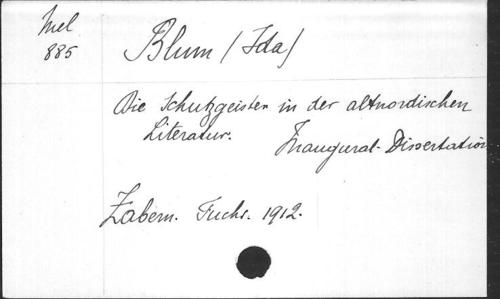 Mel
885
Blum (Ida)
Die Schutzgeister in der altnordischen
Literatur.
Inaugural-Dissertation
Zabern. Fuchs. 1912.